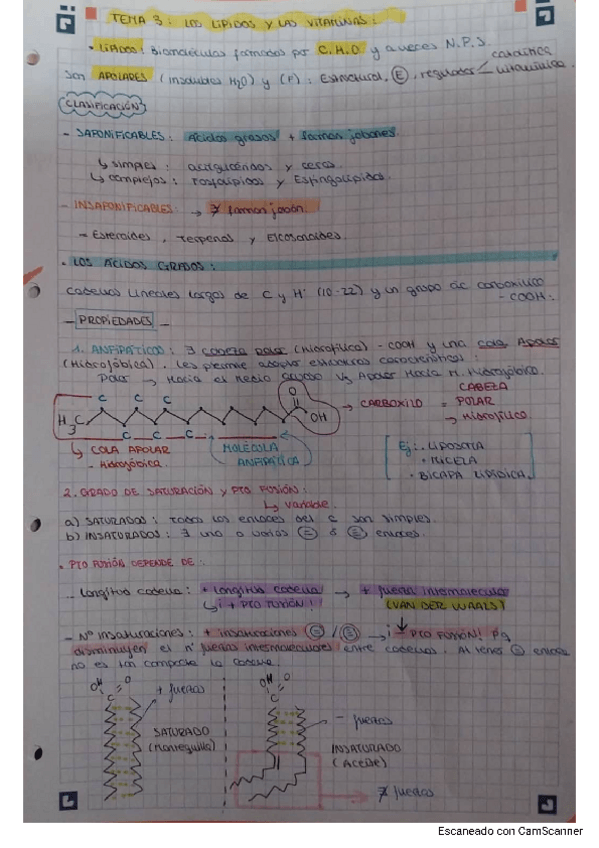 TEMA 3: LOS LÍPIDOS Y LAS VITAMINAS:
• LÍPIDOS: Biomoléculas formadas por C.H.O y a veces N.P.S.
catalítica
Son APOLARES (insolubles H₂O) y (F): Estructural, Ⓔ, reguladora
vitamínica.
CLASIFICACIÓN
- SAPONIFICABLES: Ácidos grasos + forman jabones.
↳ simples: acilglicéridos y ceras.
↳ complejos: Fosfolípidos y Esfingolípidos.
- INSAPONIFICABLES → ∄ forman jabón.
- Esteroides, Terpenos y Eicosanoides.
• LOS ÁCIDOS GRASOS:
Cadenas lineales largas de C y H (10-22) y un grupo ác carboxílico
- COOH.
- PROPIEDADES -
1. ANFIPÁTICOS: ∃ cabeza polar (hidrofílica) -COOH y una cola Apolar
(Hidrofóbica). Les permite adoptar estructuras características:
Polar → Hacia el medio acuoso Vs Apolar Hacia m. Hidrofóbico.
C C C
O
OH
H₃C
C C C
→ CARBOXILO = CABEZA POLAR
→ Hidrofílico
↳ COLA APOLAR
- Hidrofóbica.
MOLÉCULA
ANFIPÁTICA
Ej: · LIPOSOMA
· MICELA
· BICAPA LIPÍDICA
2. GRADO DE SATURACIÓN y PTO FUSIÓN:
↳ variable.
a) SATURADOS: todos los enlaces del C son simples.
b) INSATURADOS: ∃ uno o varios (=) o (≡) enlaces.
• PTO FUSIÓN DEPENDE DE:
- Longitud cadena: + longitud cadena → + fuerza intermolecular
↳ ¡ + PTO FUSIÓN! (VAN DER WAALS)
- Nº insaturaciones: + insaturaciones (=)/(≡) → ¡ - PTO FUSIÓN! Pq
disminuyen el nº fuerzas intermoleculares entre cadenas. Al tener (=) enlace
no es tan compacta la cadena.
OH O
C
+ fuerzas
SATURADO
(Mantequilla)
OH O
C
- fuerzas
INSATURADO
(Aceite)
∄ fuerzas
Escaneado con CamScanner